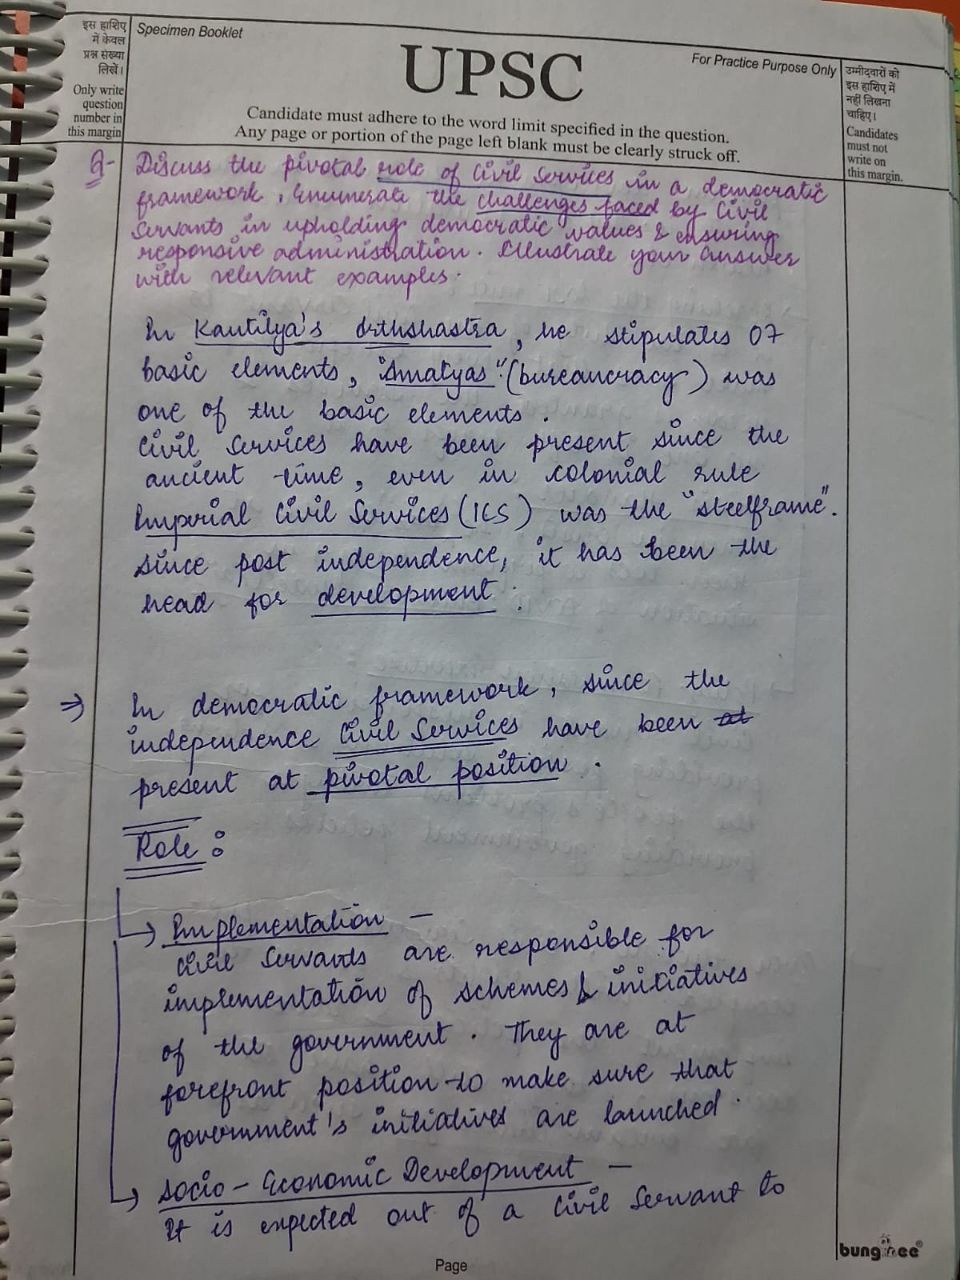 इस हाशिए
में केवल
प्रश्न संख्या
लिखें।
Only write
question
number in
this margin
Specimen Booklet
UPSC
For Practice Purpose Only
Candidate must adhere to the word limit specified in the question.
Any page or portion of the page left blank must be clearly struck off.
उम्मीदवारों को
इस हाशिए में
नहीं लिखना
चाहिए।
Candidates
must not
write on
this margin.
Q- Discuss the pivotal role of Civil Services in a democratic
framework, Enumerate the challenges faced by Civil
Servants in upholding democratic values & ensuring
responsive administration. Illustrate your answer
with relevant examples.
In Kautilya's Arthshastra, he stipulates 07
basic elements, "Amatyas" (bureaucracy) was
one of the basic elements.
Civil Services have been present since the
ancient time, even in colonial rule
Imperial Civil Services (ICS) was the "steelframe".
since post independence, it has been the
head for development.
⇒ In democratic framework, since the
independence Civil Services have been at
present at pivotal position.
Role:
Implementation -
Civil Servants are responsible for
implementation of schemes & initiatives
of the government. They are at
forefront position to make sure that
government's initiatives are launched.
Socio-Economic Development -
It is expected out of a Civil Servant to
Page
bungee®